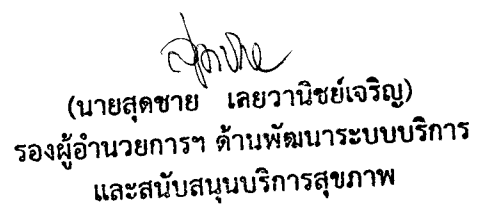 สุดชาย
(นายสุดชาย เลยวานิชย์เจริญ)
รองผู้อำนวยการฯ ด้านพัฒนาระบบบริการ
และสนับสนุนบริการสุขภาพ